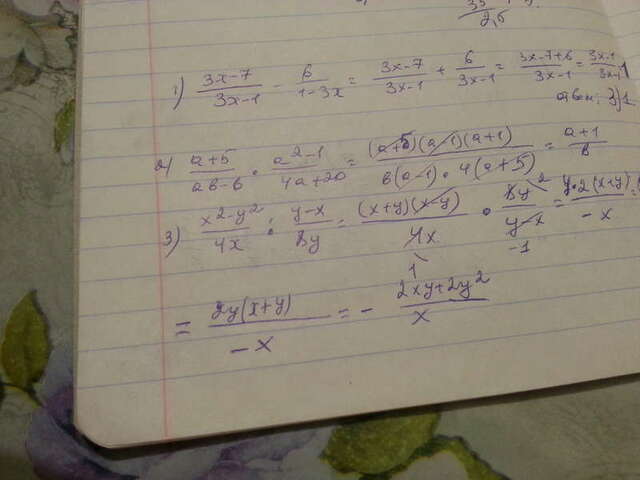 35
2,5
1) (3x-7)/(3x-1) - 6/(1-3x) = (3x-7)/(3x-1) + 6/(3x-1) = (3x-7+6)/(3x-1) = (3x-1)/(3x-1)
ответ: 3) 1
2) (a+5)/(aв-в) · (a²-1)/(4a+20) = (a+5)(a-1)(a+1)/(в(a-1)·4(a+5)) = (a+1)/в
3) (x²-y²)/(4x) : (y-x)/(8y) = (x+y)(x-y)/(4x) · (8y)/(y-x) = y·2(x+y)/(-x) =
1 2 -1
= 2y(x+y)/(-x) = - (2xy+2y²)/x